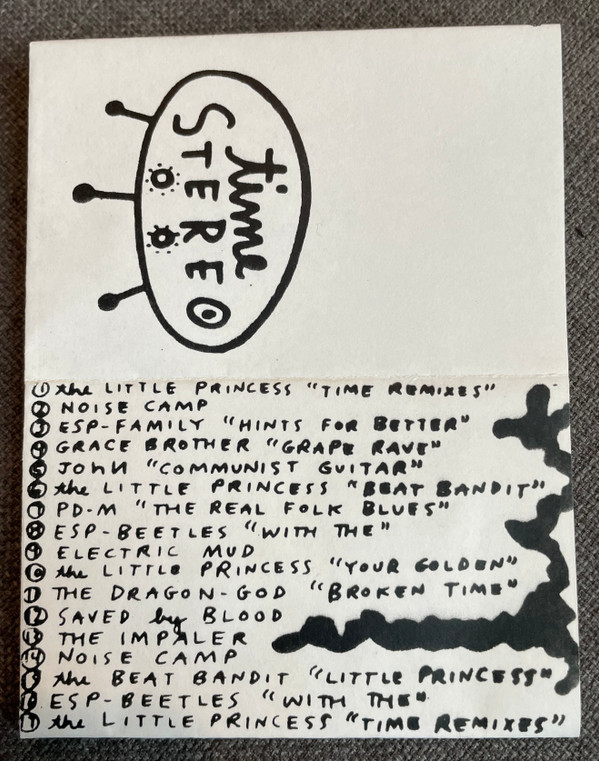 time
STEREO
① the LITTLE PRINCESS "TIME REMIXES"
② NOISE CAMP
③ ESP-FAMILY "HINTS FOR BETTER"
④ GRACE BROTHER "GRAPE RAVE"
⑤ JOHN "COMMUNIST GUITAR"
⑥ the LITTLE PRINCESS "BEAT BANDIT"
⑦ PD-M "THE REAL FOLK BLUES"
⑧ ESP-BEETLES "WITH THE"
⑨ ELECTRIC MUD
⑩ the LITTLE PRINCESS "YOUR GOLDEN"
⑪ THE DRAGON-GOD "BROKEN TIME"
⑫ SAVED by BLOOD
⑬ THE IMPALER
⑭ NOISE CAMP
⑮ the BEAT BANDIT "LITTLE PRINCESS"
⑯ ESP-BEETLES "WITH THE"
⑰ the LITTLE PRINCESS "TIME REMIXES"